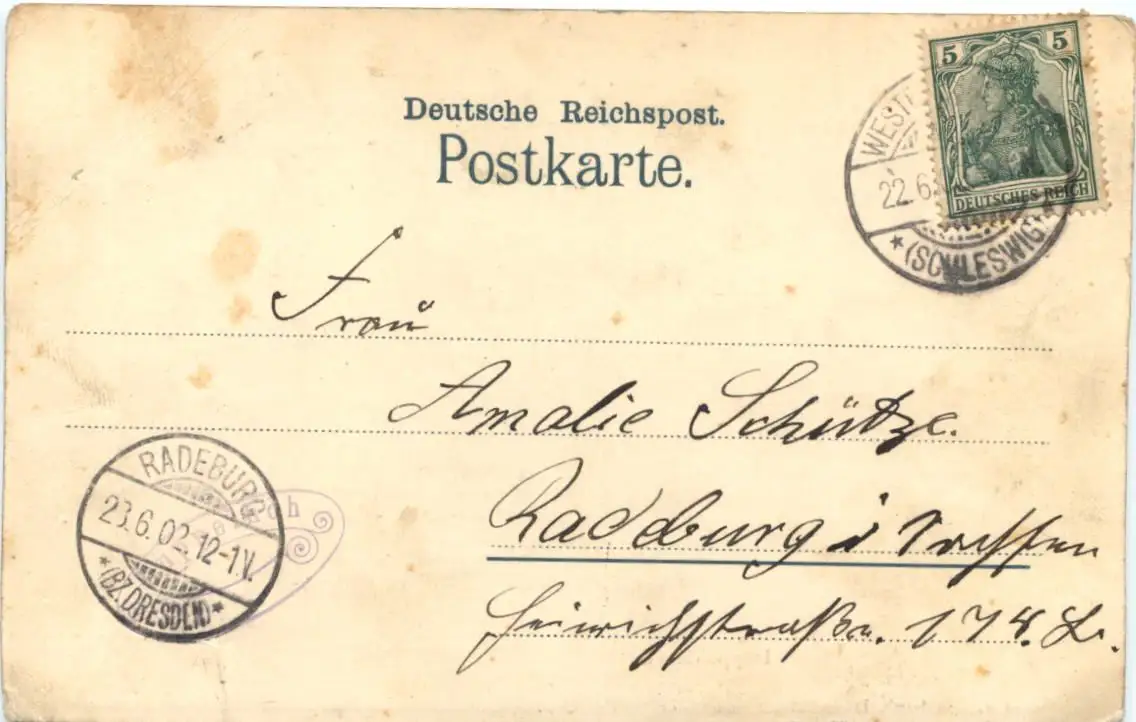 Deutsche Reichspost.
Postkarte.
5 5
DEUTSCHES REICH
WEST
22.6.
*(SCHLESWIG)*
Frau
Amalie Schütze.
Radeburg i Sachsen
Heinrichstraße. 174. L.
RADEBURG
23.6.02.12-1.V.
*(BZ.DRESDEN)*
ch